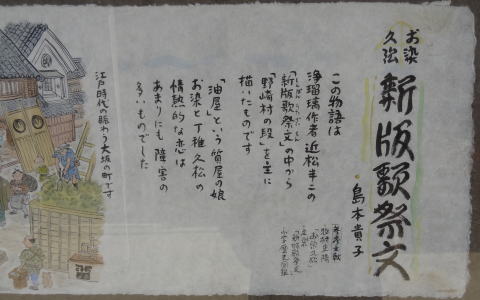 お染
久松
新版歌祭文
島本貴子
この物語は
浄瑠璃作者近松半二の
「新版歌祭文」の中から
「野崎村の段」を主に
描いたものです
「油屋」という質屋の娘
お染と丁稚久松の
情熱的な恋は
あまりにも障害の
多いものでした
参考文献
江戸時代の賑わう大坂の町です